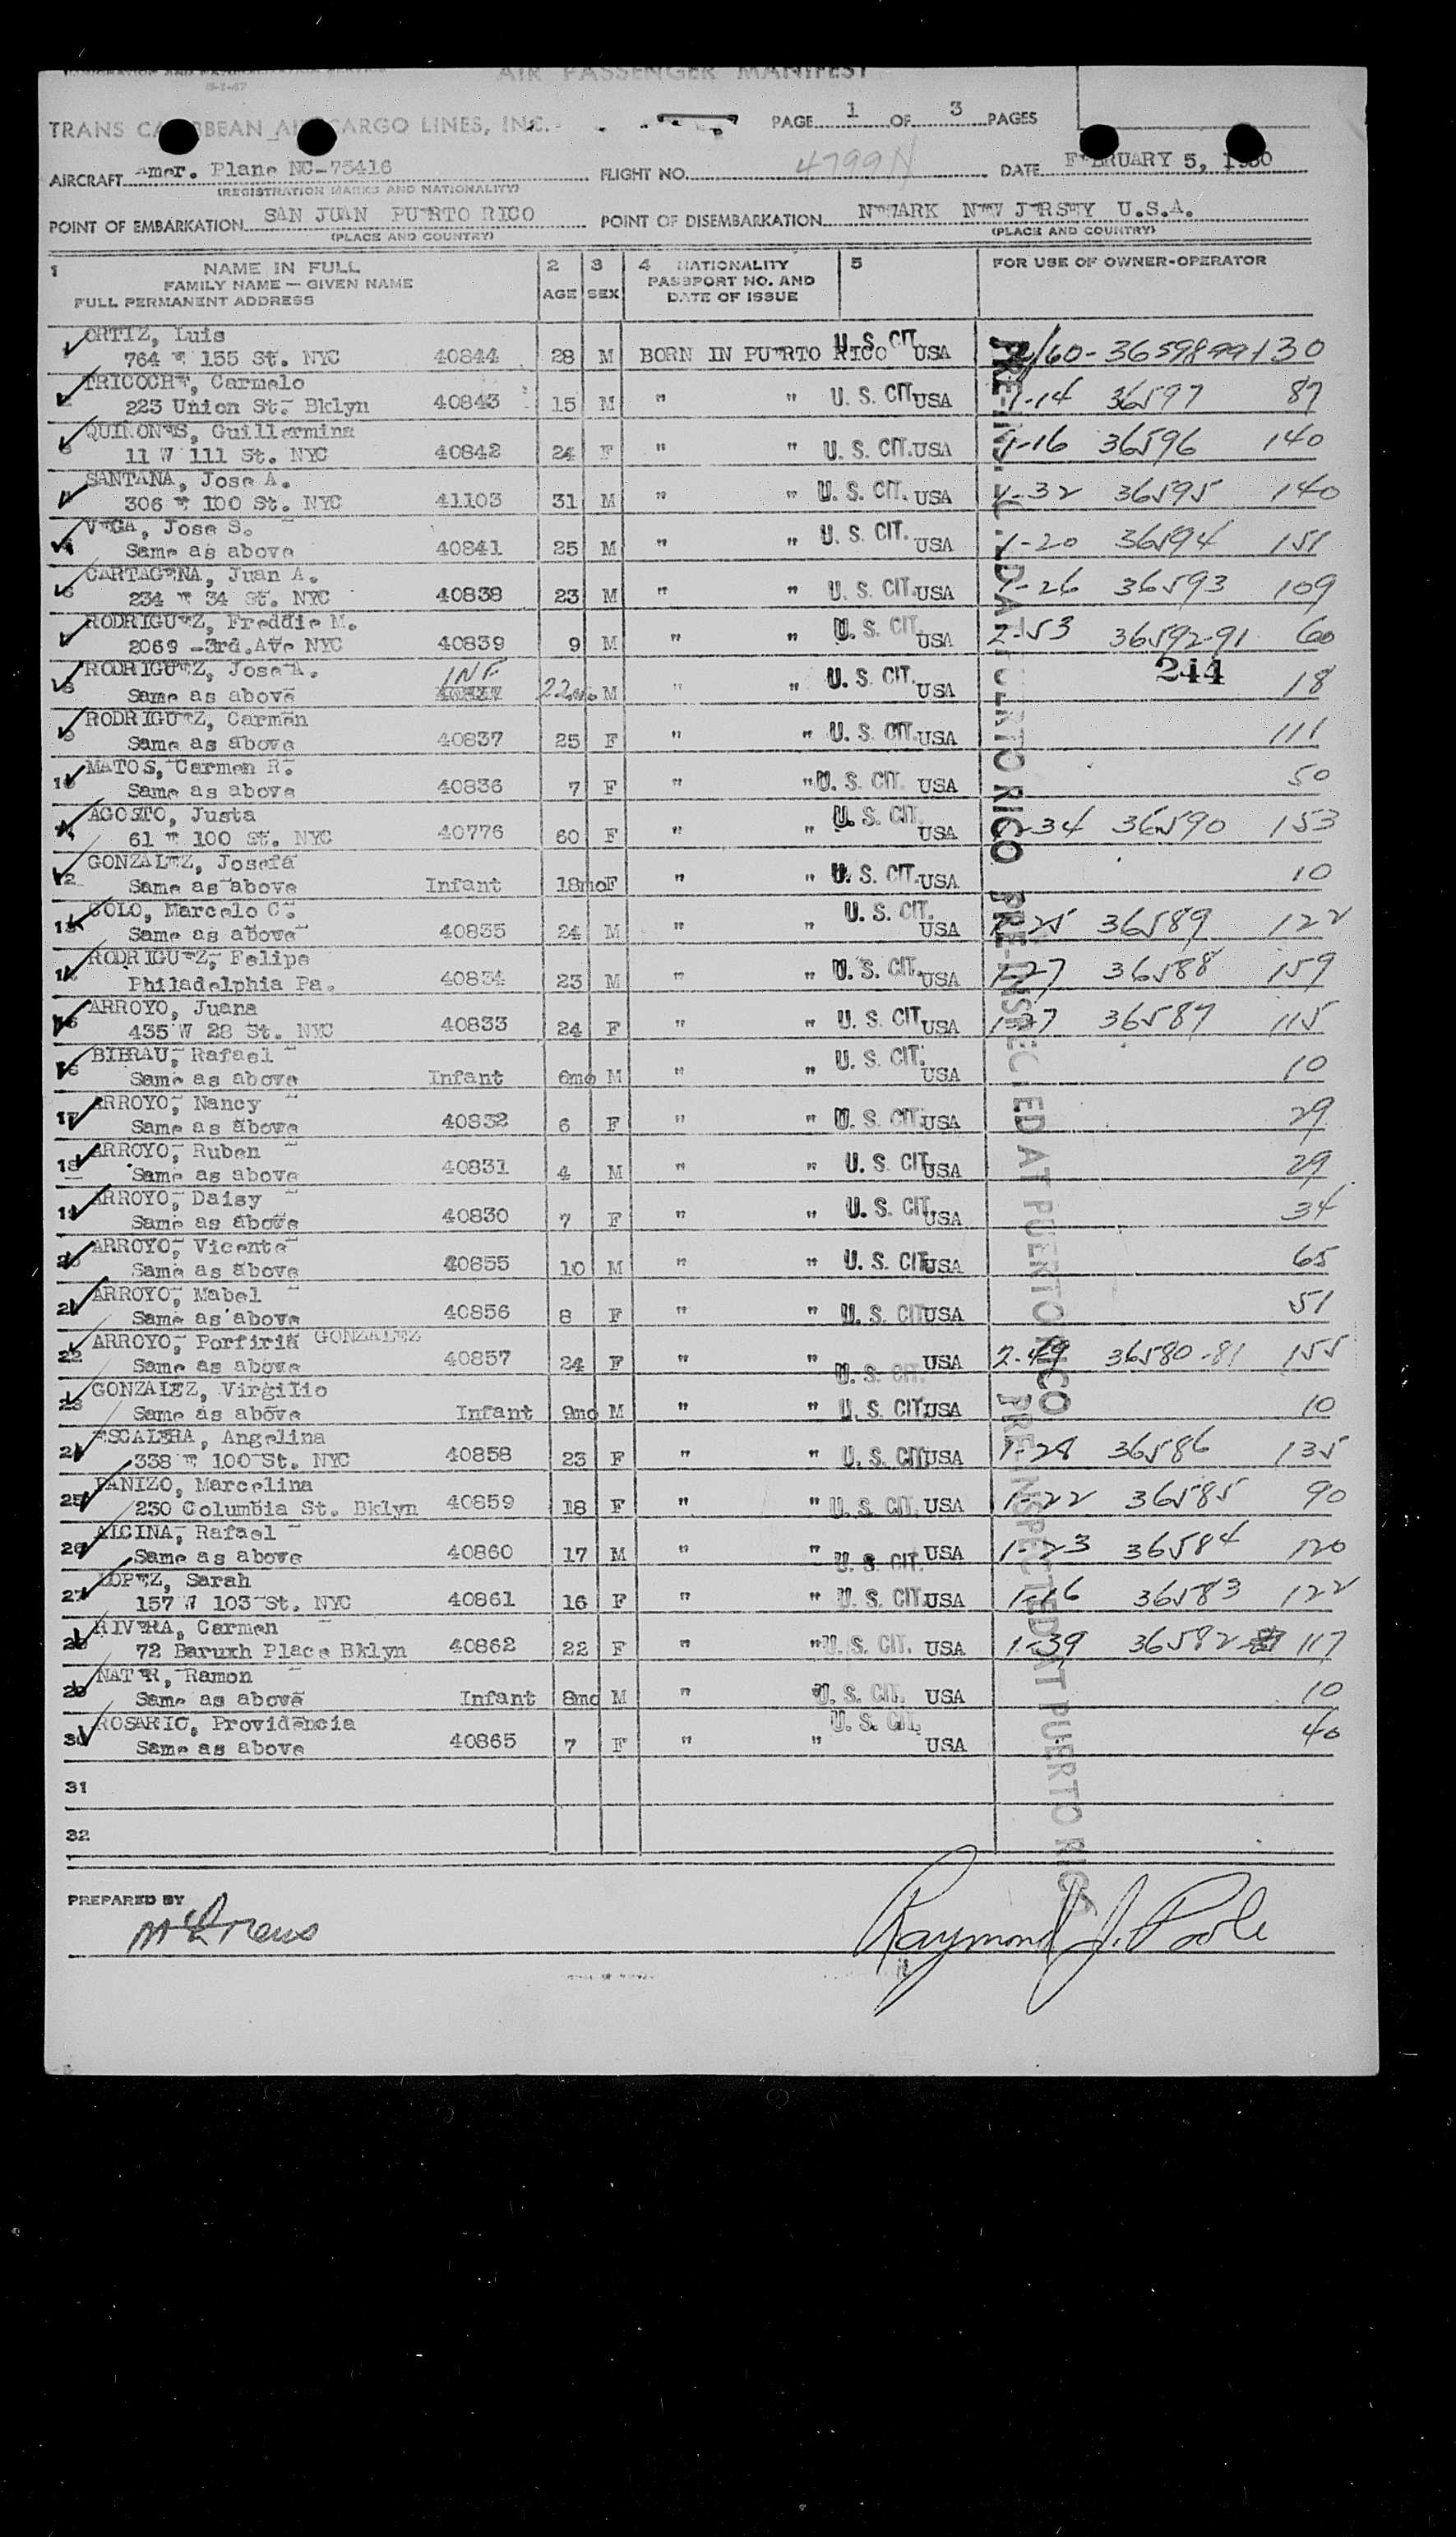 AIR PASSENGER MANIFEST
TRANS CARIBBEAN AIR CARGO LINES, INC.
PAGE 1 OF 3 PAGES
AIRCRAFT Amer. Plane NC-75416 FLIGHT NO. 4799N DATE FEBRUARY 5, 1950
(REGISTRATION MARKS AND NATIONALITY)
POINT OF EMBARKATION SAN JUAN PUERTO RICO POINT OF DISEMBARKATION NEWARK NEW JERSEY U.S.A.
(PLACE AND COUNTRY) (PLACE AND COUNTRY)
1 NAME IN FULL 2 3 4 NATIONALITY 5 FOR USE OF OWNER-OPERATOR
FAMILY NAME — GIVEN NAME AGE SEX PASSPORT NO. AND
FULL PERMANENT ADDRESS DATE OF ISSUE
ORTIZ, Luis
764 W 155 St. NYC 40844 28 M BORN IN PUERTO RICO U. S. CIT. USA 2/60-36598-99 130
TRICOCHE, Carmelo
223 Union St. Bklyn 40843 15 M " " U. S. CIT. USA 1-14 36597 87
QUINONES, Guillermina
11 W 111 St. NYC 40842 24 F " " U. S. CIT. USA 1-16 36596 140
SANTANA, Jose A.
306 W 100 St. NYC 41103 31 M " " U. S. CIT. USA 1-32 36595 140
VEGA, Jose S.
Same as above 40841 25 M " " U. S. CIT. USA 1-20 36594 151
CARTAGENA, Juan A.
234 W 34 St. NYC 40838 23 M " " U. S. CIT. USA 1-26 36593 109
RODRIGUEZ, Freddie M.
2069 -3rd.Ave NYC 40839 9 M " " U. S. CIT. USA 2-53 36592-91 60
244
RODRIGUEZ, Jose A. INF
Same as above 22mo M " " U. S. CIT. USA 18
RODRIGUEZ, Carmen
Same as above 40837 25 F " " U. S. CIT. USA 111
MATOS, Carmen R.
10 Same as above 40836 7 F " " U. S. CIT. USA 50
AGOSTO, Justa
61 W 100 St. NYC 40776 60 F " " U. S. CIT. USA 1-34 36590 153
GONZALEZ, Josefa
12 Same as above Infant 18mo F " " U. S. CIT. USA 10
COLO, Marcelo C.
13 Same as above 40835 24 M " " U. S. CIT. USA 1-25 36589 122
RODRIGUEZ, Felipe
Philadelphia Pa. 40834 23 M " " U. S. CIT. USA 1-27 36588 159
ARROYO, Juana
435 W 28 St. NYC 40833 24 F " " U. S. CIT. USA 1-37 36587 115
BIERAU, Rafael
Same as above Infant 6mo M " " U. S. CIT. USA 10
ARROYO, Nancy
17 Same as above 40832 6 F " " U. S. CIT. USA 29
ARROYO, Ruben
18 Same as above 40831 4 M " " U. S. CIT. USA 29
ARROYO, Daisy
19 Same as above 40830 7 F " " U. S. CIT. USA 34
ARROYO, Vicente
20 Same as above 40855 10 M " " U. S. CIT. USA 65
ARROYO, Mabel
21 Same as above 40856 8 F " " U. S. CIT. USA 51
ARROYO, Porfiria GONZALEZ
22 Same as above 40857 24 F " " U. S. CIT. USA 2-49 36580-81 155
GONZALEZ, Virgilio
23 Same as above Infant 9mo M " " U. S. CIT. USA 10
ESCALERA, Angelina
24 338 W 100 St. NYC 40858 23 F " " U. S. CIT. USA 1-28 36586 135
PANIZO, Marcelina
25 230 Columbia St. Bklyn 40859 18 F " " U. S. CIT. USA 1-22 36585 90
ALCINA, Rafael
26 Same as above 40860 17 M " " U. S. CIT. USA 1-23 36584 120
LOPEZ, Sarah
27 157 W 103 St. NYC 40861 16 F " " U. S. CIT. USA 1-16 36583 122
RIVERA, Carmen
28 72 Baruxh Place Bklyn 40862 22 F " " U. S. CIT. USA 1-39 36582 117
NATER, Ramon
29 Same as above Infant 8mo M " " U. S. CIT. USA 10
ROSARIO, Providencia
30 Same as above 40865 7 F " " U. S. CIT. USA 40
31
32
PRE-INSPECTED AT PUERTO RICO
PRE-INSPECTED AT PUERTO RICO
PRE-INSPECTED AT PUERTO RICO
PREPARED BY
Raymond J. Poole